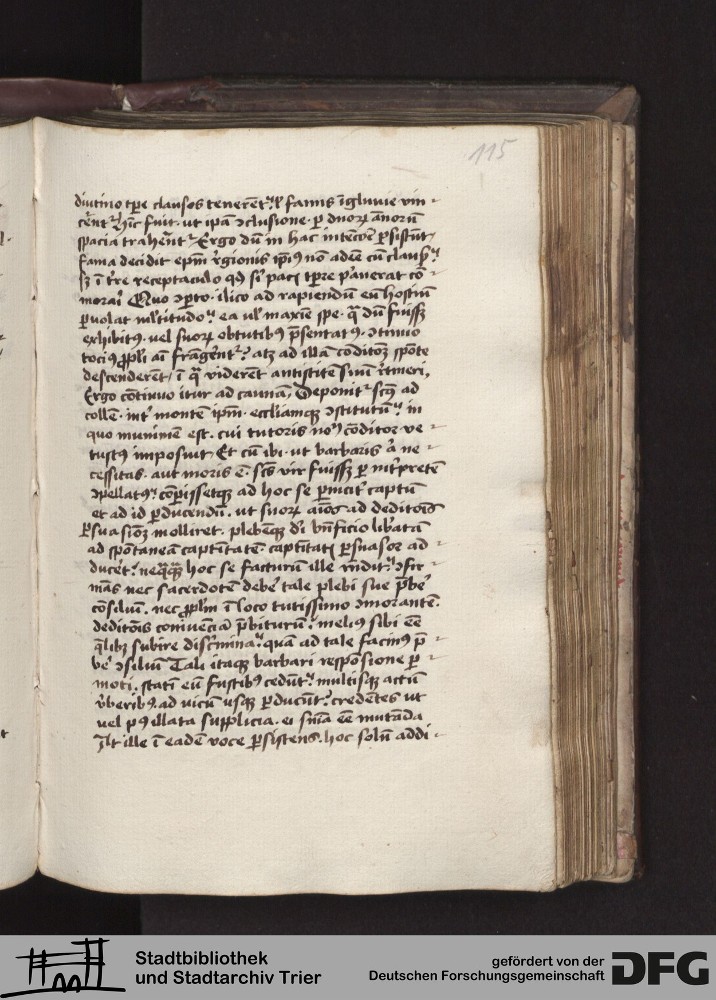 115
diutino tp̄re clausos tenerēt ul̓ famis īgluuie vin-
cēnt᷑ hīc fuit ut ipā ɔclusione p̱ duoꝝ annoꝝ
spacia trahent᷑ Ergo dū in hac intēcōe p̱sistūt
fama decidit ep̄m r̓gionis ip̄iꝰ nō adeē cū claus᷑
sꝫ ī t̓re receptaculo qꝫ si pacꝭ tp̄re p̄auerat cō-
morai Quo ɔp̱to ilico ad rapiendū eū hostiū
p̱uolat ml̓titudo ea ul̓ maxīe spe qͣ dū fuissꝫ
exhibitꝰ vel suoꝝ obtutibꝰ p̄sentatꝰ ɔtinuo
tociꝰ ppl̓i aī frāgent᷑ atqꝫ ad illā cōditoꝫ spōte
descenderēt ī qͣ viderēt antistitē suū r̓tineri
Ergo cōtinuo itur ad caunā Deponit᷑ scꝫ ad
collē int̓ montē ip̄m eccliamqꝫ ɔstitutū in
quo munimē est cui tutoris noī cōditor ve-
tustꝰ imposuit Et cū ibi ut barbaris a ne-
cessitas aut moris ē scs̄ vir fuissꝫ p̱ int̓pretē
ɔpellatꝰ cōpissetqꝫ ad hoc se p̱nicit̓ captū
et ad id p̱ducendū ut suoꝝ aīos ad deditoīs
p̱suasioꝫ molliret plebēqꝫ di bn̄ficio lib̓atā
ad spōtaneā captītatē captītatꝭ p̱suasor ad-
ducet neqͣqͣꝫ hoc se facturū ille rn̄dit ɔfir-
mās nec sacerdotē debē tale plebi sue p̄bē
cōsiliū nec ppl̓m ī loco tutissimo ɔmorantē
deditoīs coniuēcia p̄biturū melius sibi eē
qͣlibꝫ subire discīmina quā ad tale facinꝰ p̄-
bē ɔsiliū Tali itaqꝫ barbari respōsione p̱-
moti statī eū fustibꝰ cedūt multisqꝫ actū
v̓beribꝰ ad vicū usqꝫ p̱ducūt credētes ut
vel pꝰ illata supplicia ei sn̄ia eē mutāda
At ille ī eadē voce p̱sistens hoc solū addi-
Stadtbibliothek
und Stadtarchiv Trier
gefördert von der
Deutschen Forschungsgemeinschaft
DFG